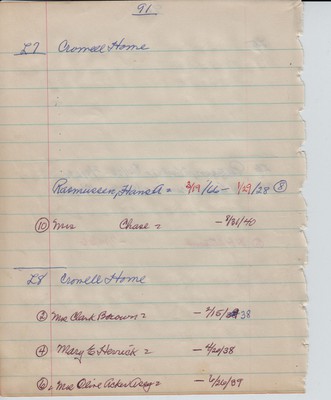 91
L7 Crowell Home
Rasmussen, Hans = 2/19/66 - 1/29/28 ⑧
⑩ Mrs Chase = - 7/31/40
L8 Crowell Home
② Mrs Clark Brown = - 2/15/38
④ Mary E Herrick = - 4/20/38
⑥ Mrs Olive - 6/26/39